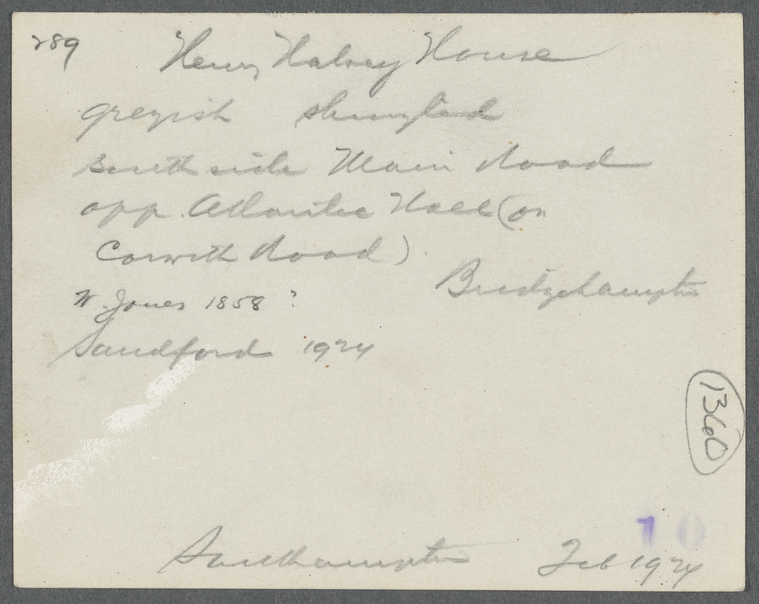 289
Henry Halsey House
greyish shingled
South side Main Road
opp. Atlantic Hall (on
Corwith Road)
Bridgehampton
W. Jones 1858 ?
Sandford 1924
1360
10
Southampton Feb 1924